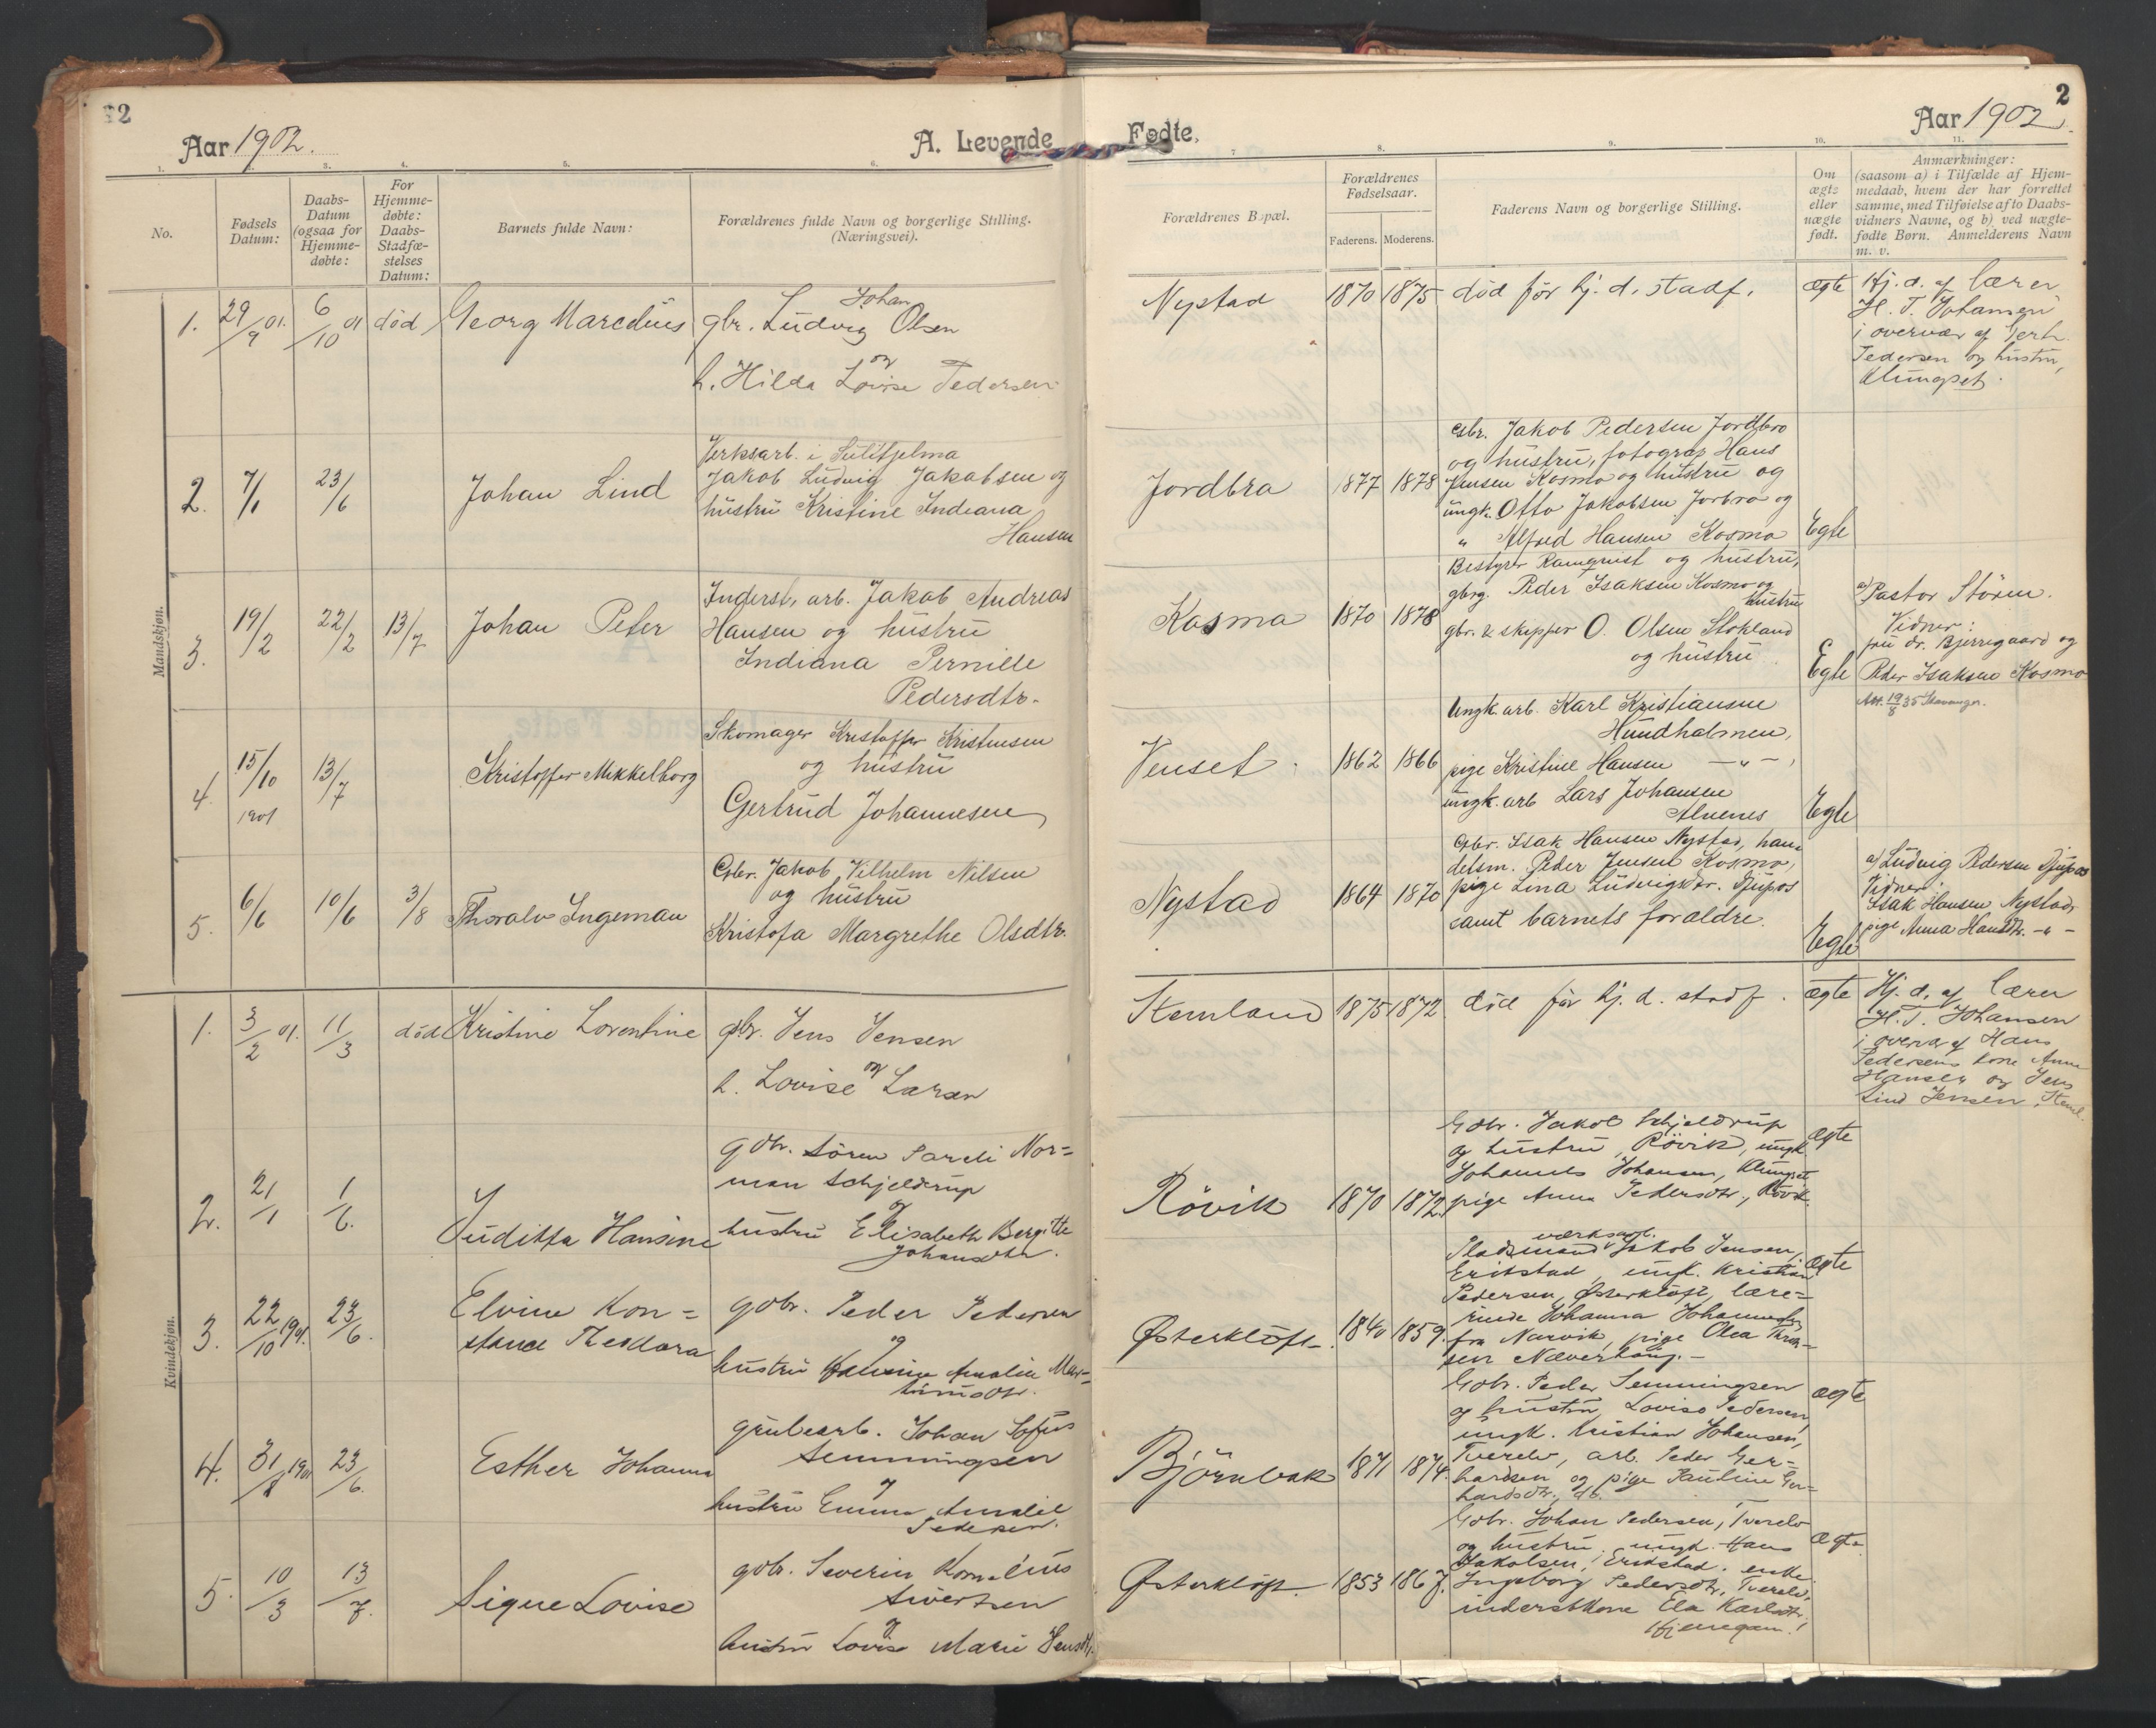 2
Aar 1902.
A. Levende
1.
3.
4.
5.
6.
No.
Fødsels Datum:
Daabs-Datum (ogsaa for Hjemme-døbte:
For Hjemme-døbte: Daabs-Stadfæ-stelses Datum:
Barnets fulde Navn:
Forældrenes fulde Navn og borgerlige Stilling.
(Næringsvei).
Mandskjøn.
1. 29/9 01. 6/10 01 død Georg Marcelius
Johan
gbr. Ludvig Olsen
og
h. Hilda Lovise Pedersen
2. 7/1 23/6 Johan Lind
Verksarb. i Sulitjelma
Jakob Ludvig Jakobsen og
hustru Kristine Indiana
Hansen
3. 19/2 22/2 13/7 Johan Peter
Inderst, arb. Jakob Andreas
Hansen og hustru
Indiana Pernille
Pedersdtr.
4. 15/10 1901 13/7 Kristoffer Mikkelborg
Skomager Kristoffer Kristensen
og hustru
Gertrud Johannesen
5. 6/6 10/6 3/8 Thoralv Ingeman
Gbr. Jakob Vilhelm Nilsen
og hustru
Kristofa Margrethe Olsdtr.
Kvindekjøn.
1. 3/2 01. 11/3 død Kristine Lorentine
gbr. Jens Jensen
og
h. Lovise Larsen
2. 21/1 1/6. Juditha Hansine
gbr. Sören Pareli Nor=
man Schjeldrup
og
hustru Elisabeth Bergitte
Johansdtr.
3. 22/10 1901. 23/6. Elvine Kon=
stance Theodora
gbr. Peder Pedersen
og
hustru Amalie Mar=
tinusdtr.
4. 31/8 1901 23/6. Esther Johanna
grubearb. Johan Sofus
Semmingsen
og
hustru Emma Amalie
Pedersen.
5. 10/3 13/7. Signe Lovise
gbr. Severin Kornelius
Sivertsen
og
hustru Lovise Marie Jensdtr.
2
Fødte.
Aar 1902.
7
8.
9.
10.
11.
Forældrenes Bopæl.
Forældrenes Fødselsaar.
Faderens. Moderens.
Faderens Navn og borgerlige Stilling.
Om ægte eller uægte født.
Anmærkninger:
(saasom a) i Tilfælde af Hjem-
medaab, hvem der har forrettet
samme, med Tilføielse af to Daabs-
vidners Navne, og b) ved uægte-
fødte Børn. Anmelderens Navn
m. v.
Nystad 1870 1875 død før hj. d. stadf. ægte
Hj. d. af lærer
H. T. Johansen
i overvær af Gerh.
Pedersen og hustru,
Klungset.
Jordbra 1877 1878
Gbr. Jakob Pedersen Jordbro
og hustru, fotograf Hans
Jensen Kosmo og hustru og
ungk. Otto Jakobsen Jorbro og
" Alfred Hansen Kosmo Egte
Kosma 1870 1878
Bestyrer Ramqvist og hustru,
gbrg. Peder Isaksen Kosmo og
hustru
gbr. & skipper O. Olsen Stokland
og hustru. Egte
a) Pastor Stören.
Vidner:
fru dr. Bjerregaard og
Peder Isaksen Kosmo
Att. 19/8 35 Stavanger.
Venset. 1862 1866
Ungk. arb. Karl Kristiansen
Hundholmen,
pige Kristine Hansen —"—,
ungk. arb Lars Johansen
Alvenes Egte
Nystad 1864 1870
Gbr. Isak Hansen Nystad, han
delsm. Peder Jensen Kosmo,
pige Lina Ludvigsdr. Djupos
samt barnets forældre. Egte
a) Ludvig Pedersen Djupos
Vidner:
Isak Hansen Nystad,
pige Anna Hansdtr. -"-
Stemland 1875 1872. død før hj. d. stadf. ægte
Hj. d. af lærer
H. T. Johansen
i overvær af Hans
Pedersens kone Anna
Hansen og Jens
Lind Jensen, Steml.
Rövik 1870 1872.
Gbr. Jakob Schjeldrup
og hustru, Rövik, ungk
Johannes Johansen, Klungset
pige Anna Pedersdtr., Rövik. Ægte
Østerkløft. 1840 1859.
værksarb.
Pladsmand Jakob Jensen,
Erikstad, ungk. Kristian
Pedersen, Østerkløft, lære=
rinde Johanna
fra Narvik, pige Olea
sen Næverhaug.— ægte
Björnbak 1871 1874.
Gbr. Peder Semmingsen
og hustru Lovise Pedersen,
ungk. Kristian Johansen,
Tverelv, arb. Peder Ger=
hardsen og pige Pauline Ger=
hardsdtr., ægte
Østerkløft. 1853 1867.
Gbr. Johan Pedersen, Tverelv
og hustru, ungk. Hans
Jakobsen, Erikstad, enke
Ingeborg Pedersdtr., Tverelv,
inderstkone Ela Karlsdtr.
Hjemgam. Ægte